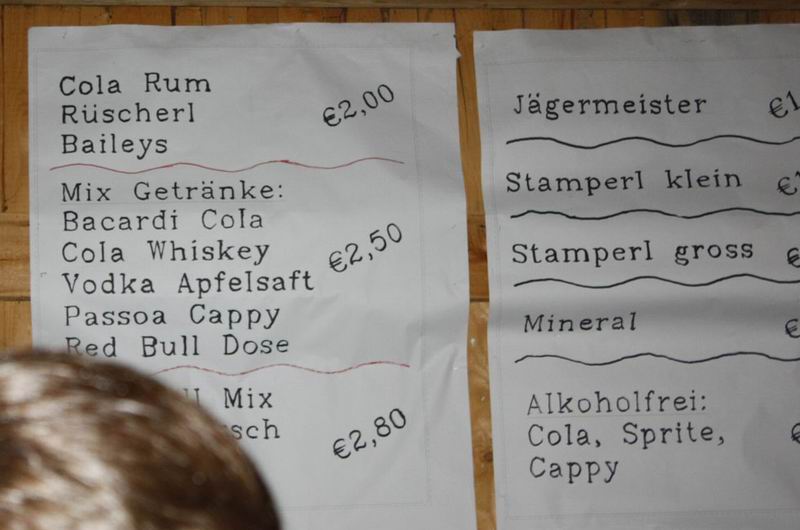 Cola Rum
Rüscherl
Baileys
€2,00
Mix Getränke:
Bacardi Cola
Cola Whiskey
Vodka Apfelsaft
Passoa Cappy
Red Bull Dose
€2,50
Mix
€2,80
Jägermeister €1
Stamperl klein €
Stamperl gross €
Mineral €
Alkoholfrei:
Cola, Sprite, €
Cappy